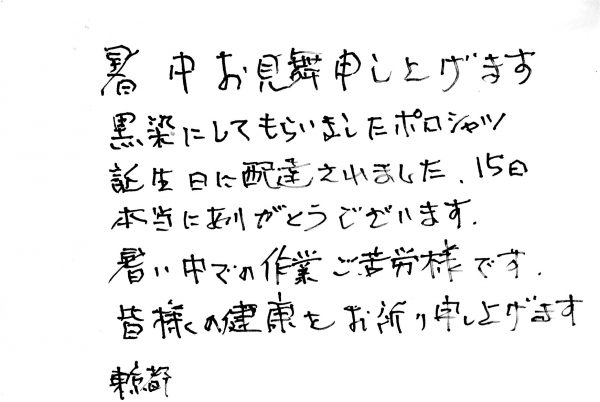 暑中お見舞申し上げます
黒染にしてもらいましたポロシャツ
誕生日に配達されました、15日
本当にありがとうございます.
暑い中での作業ご苦労様です.
皆様の健康をお祈り申し上げます
東京都